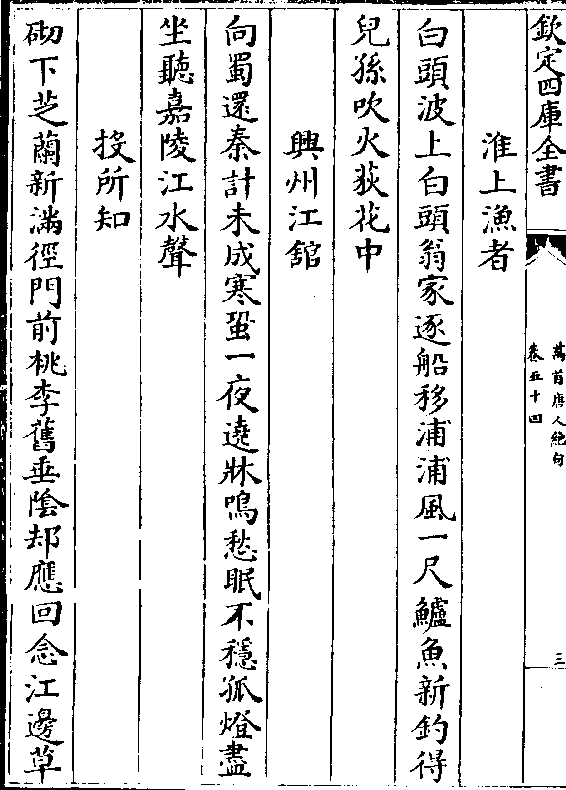 欽定四庫全書
萬首唐人絶句
卷五十四
三
淮上漁者
白頭波上白頭翁家逐船移浦浦風一尺鱸魚新釣得
兒孫吹火荻花中
興州江舘
向蜀還秦計未成寒蛩一夜遶牀鳴愁眠不穩孤燈盡
坐聽嘉陵江水聲
投所知
砌下芝蘭新滿徑門前桃李舊垂陰却應回念江邊草